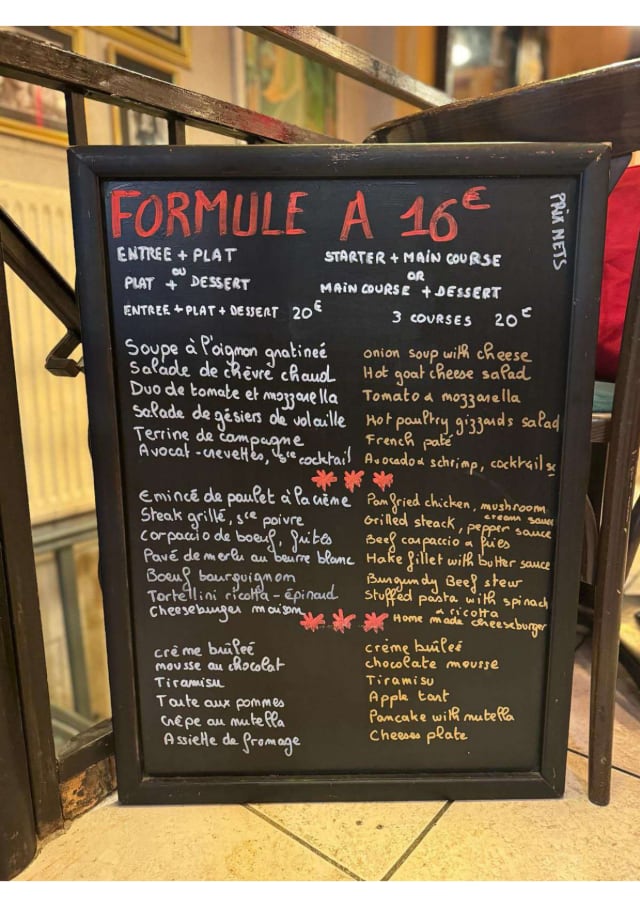 FORMULE A 16€
PRIX NETS
ENTREE + PLAT
ou
PLAT + DESSERT
ENTREE + PLAT + DESSERT 20€
STARTER + MAIN COURSE
OR
MAIN COURSE + DESSERT
3 COURSES 20€
Soupe à l'oignon gratineé
Salade de chèvre chaud
Duo de tomate et mozzarella
Salade de gésiers de volaille
Terrine de campagne
Avocat-crevettes, sce cocktail
onion soup with cheese
Hot goat cheese salad
Tomato & mozzarella
Hot paultry gizzards salad
French paté
Avocado & schrimp, cocktail sc
Emincé de poulet à la crème
Steak grillé, sce poivre
Carpaccio de boeuf, frites
Pavé de merlu au beurre blanc
Boeuf bourguignom
Tortellini ricotta - épinard
Cheeseburger maison
Pan fried chicken, mushroom
cream sauce
Grilled steack, pepper sauce
Beef carpaccio & fries
Hake fillet with butter sauce
Burgundy Beef stew
Stuffed pasta with spinach
& ricotta
Home made cheeseburger
crème bruleé
mousse au chocolat
Tiramisu
Tarte aux pommes
Crêpe au nutella
Assiette de fromage
crème bruleé
chocolate mousse
Tiramisu
Apple tart
Pancake with nutella
Cheeses plate